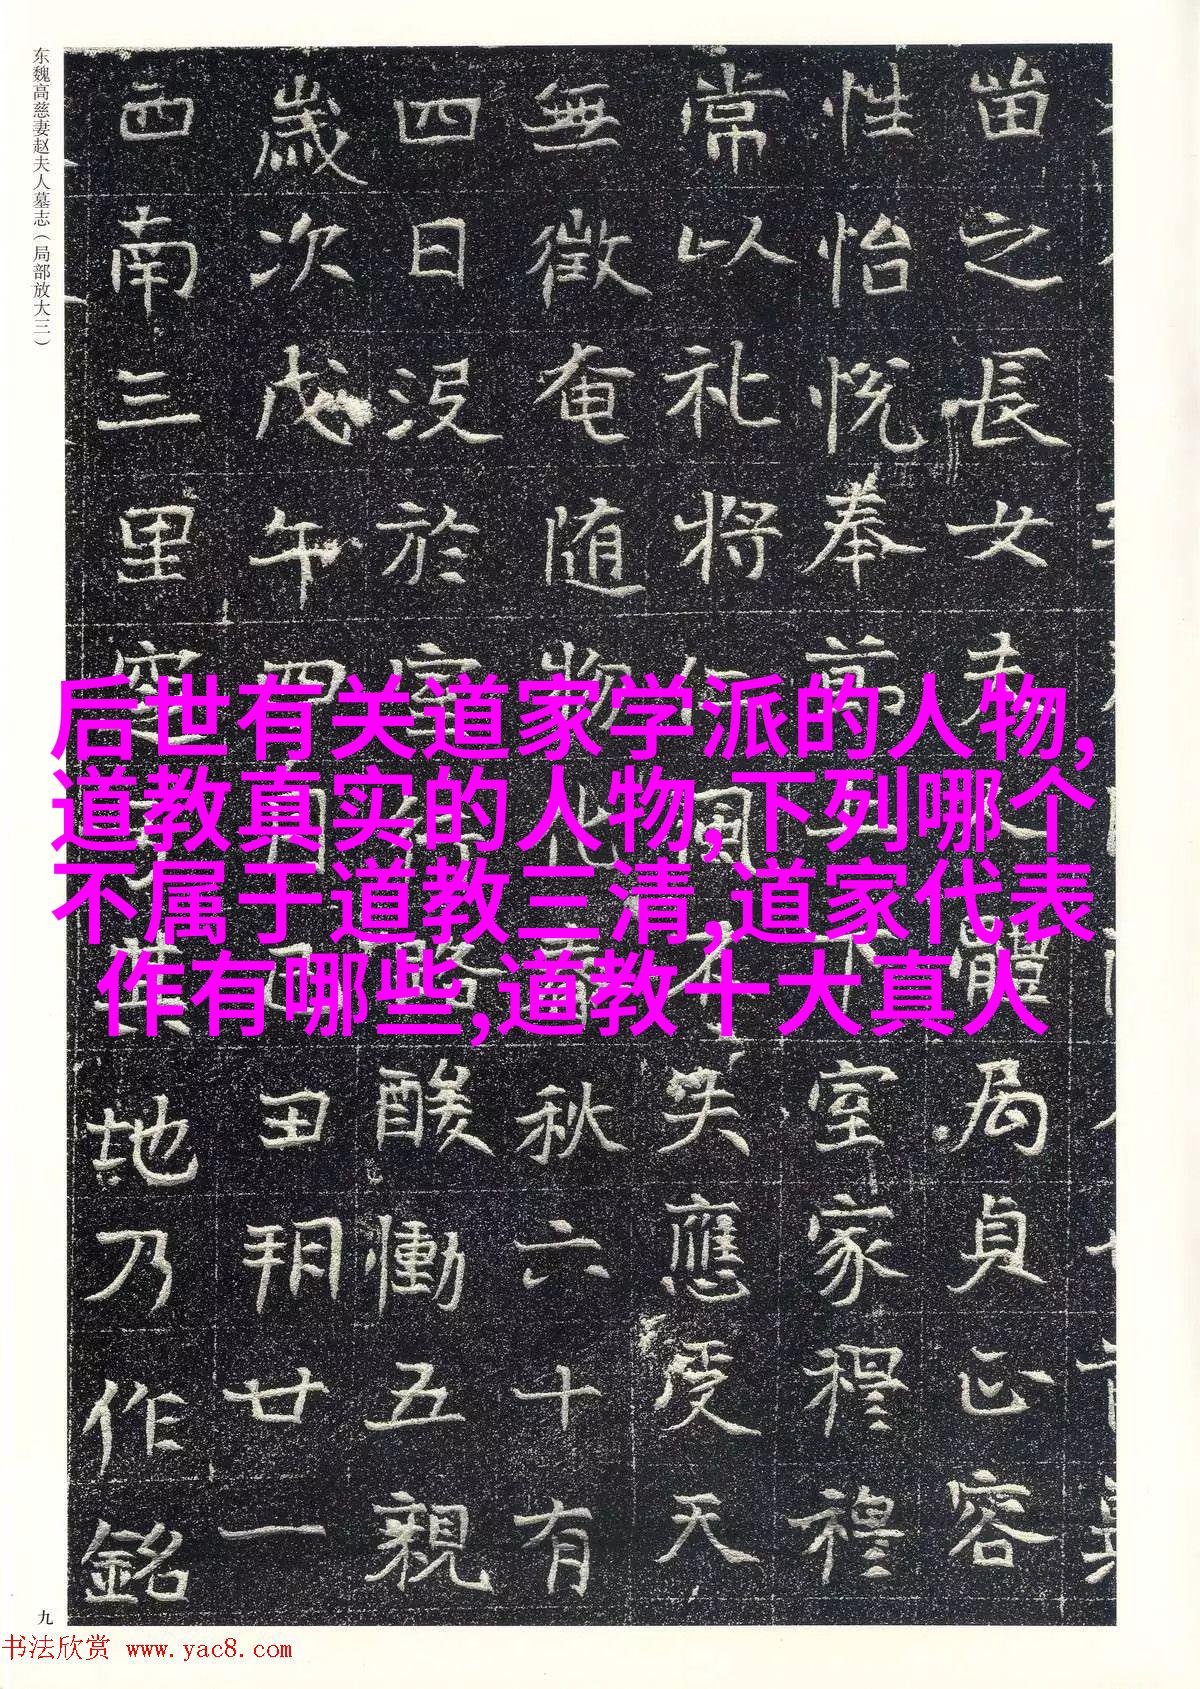 东魏高慈妻赵夫人墓志（局部放大三）
之長女體局貞正容
性怡悅奉下室家穆穆
常以礼将仁風不失應受天
無徵奄随物化春秋六十有
四日没於室行路酸慟五親
歲次戊午四月己丑朔廿一
西南三里地乃作銘
后世有关道家学派的人物,
道教真实的人物,下列哪个
不属于道教三清,道家代表
作有哪些,道教十大真人
九
书法欣赏 www.yac8.com